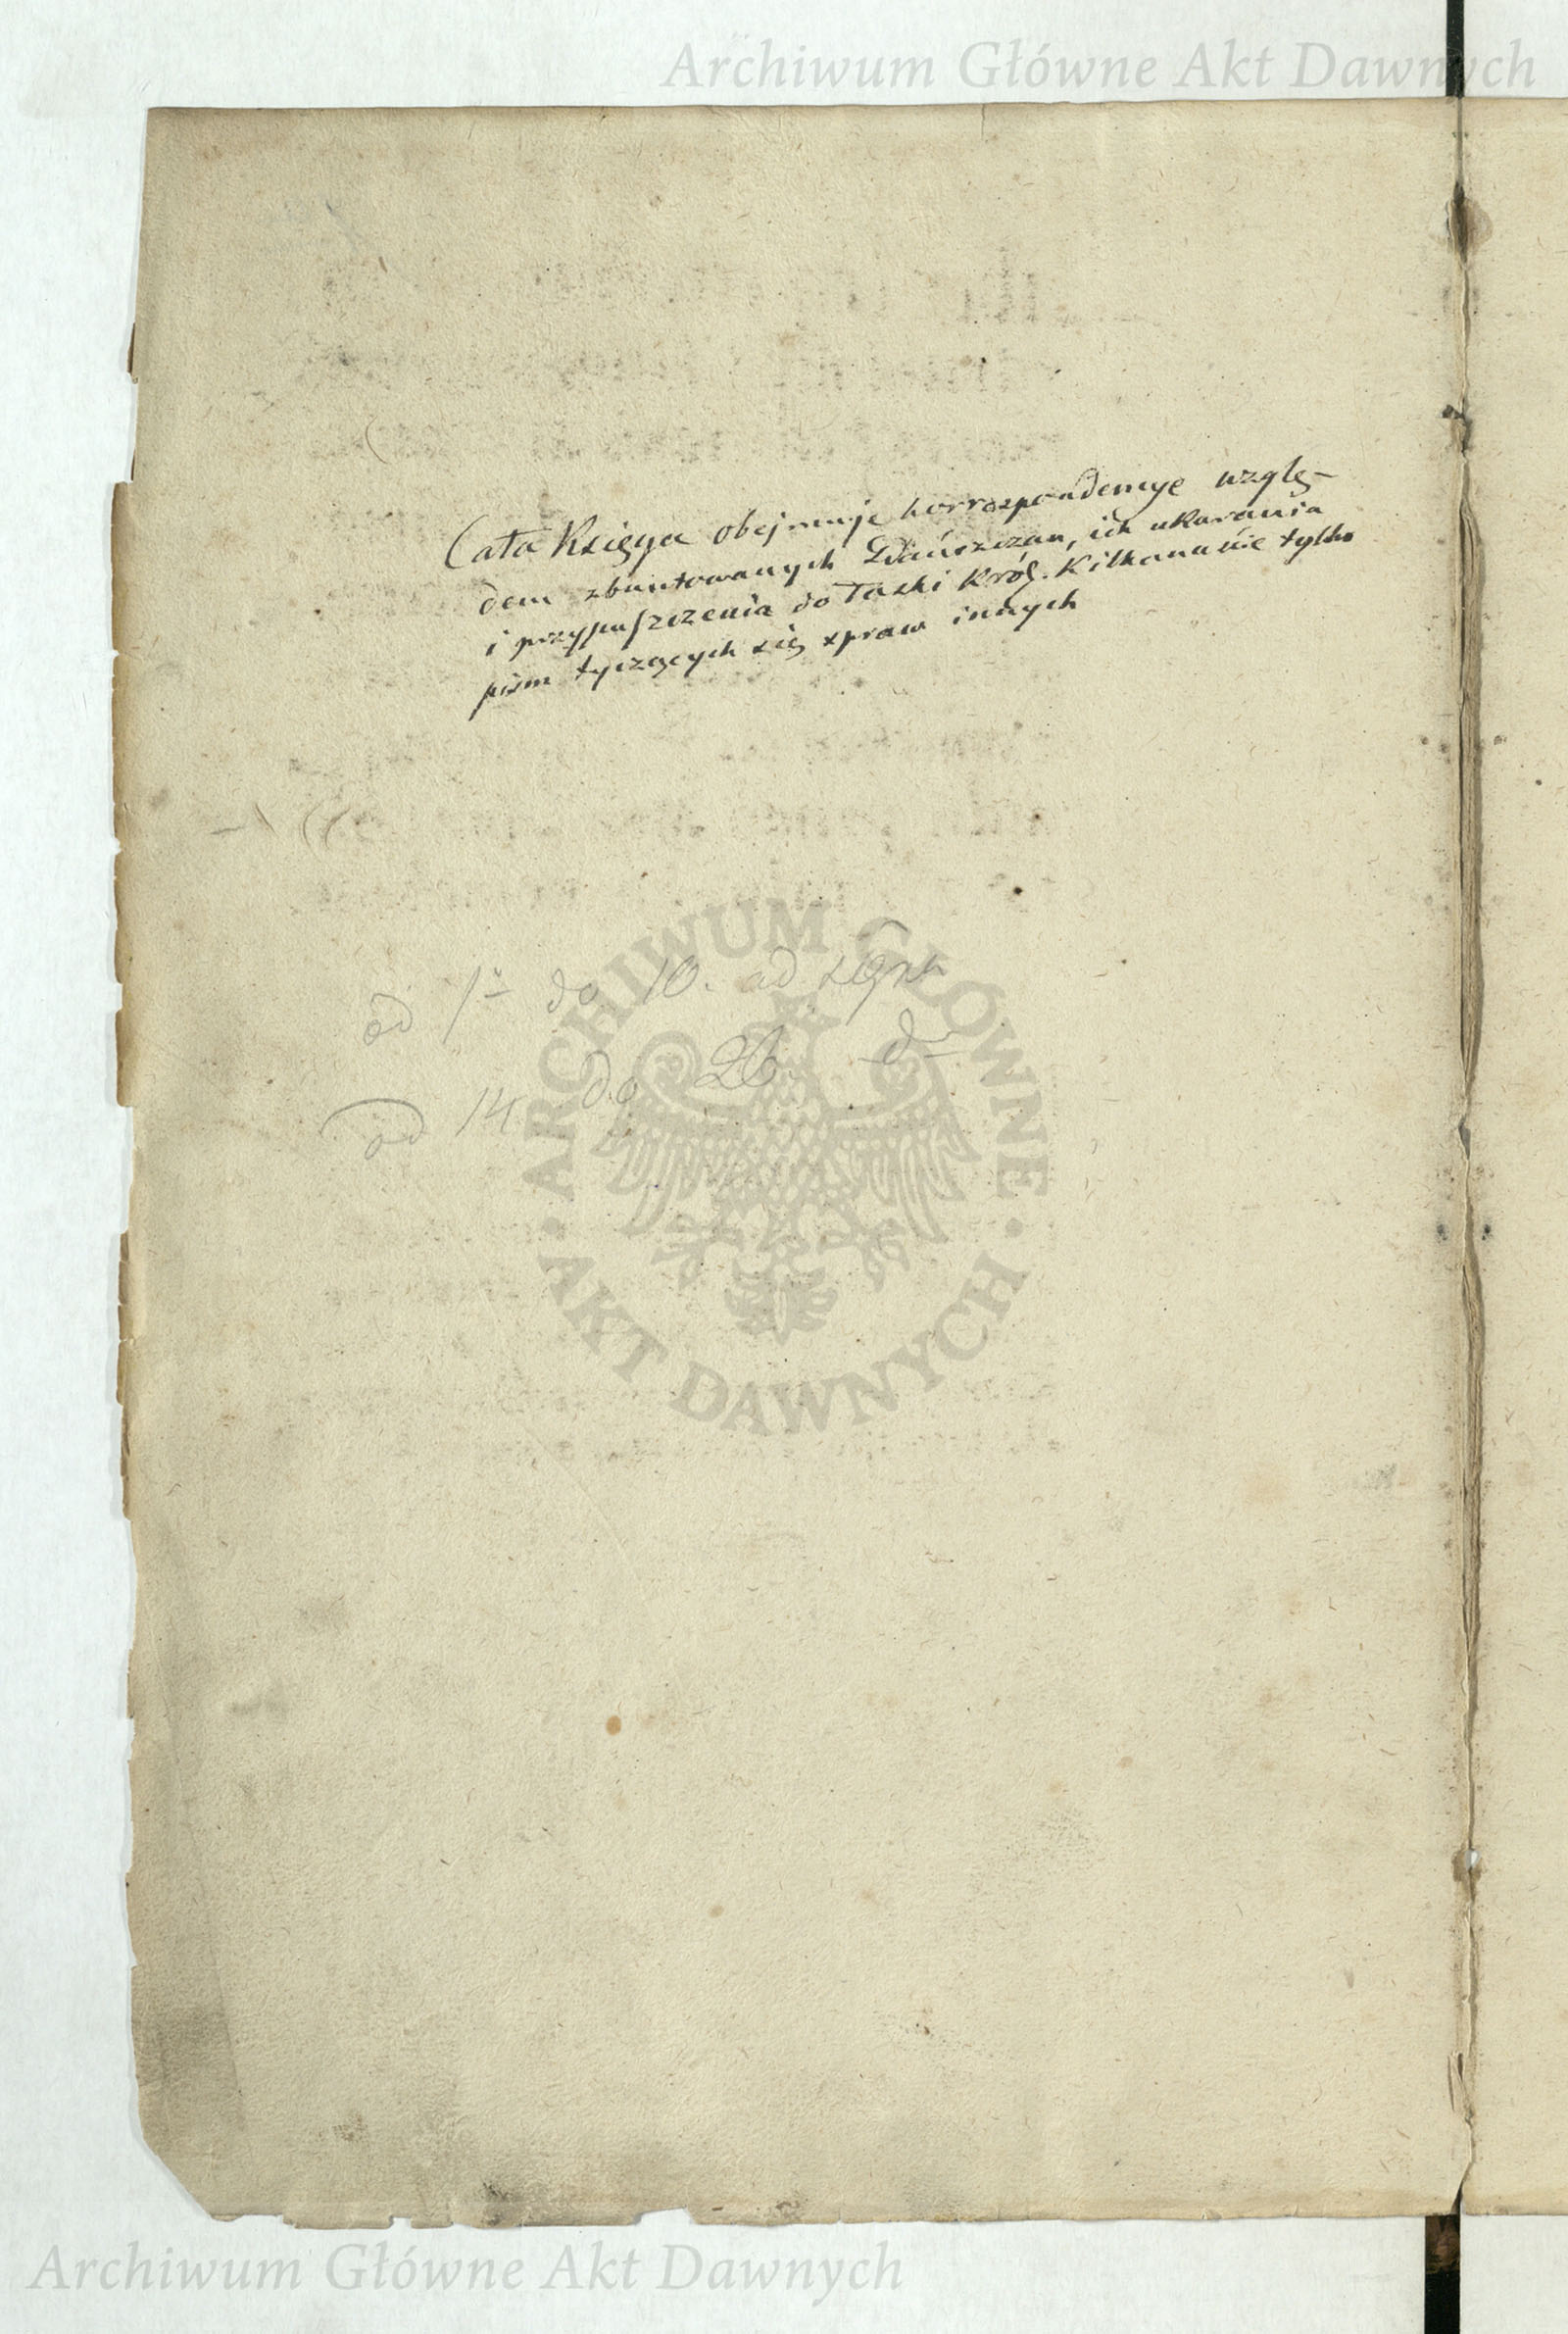 Archiwum Główne Akt Dawnych
Cała Księga obejmuje korrespondencye wzglę-
dem zbuntowanych Gdańszczan, ich ukarania
i przypuszczenia do łaski Król. Kilkanaście tylko
pism tyczących się spraw innych
od 1° do 10. ad
od 14 do 26. d°
ARCHIWUM GŁÓWNE
AKT DAWNYCH
Archiwum Główne Akt Dawnych